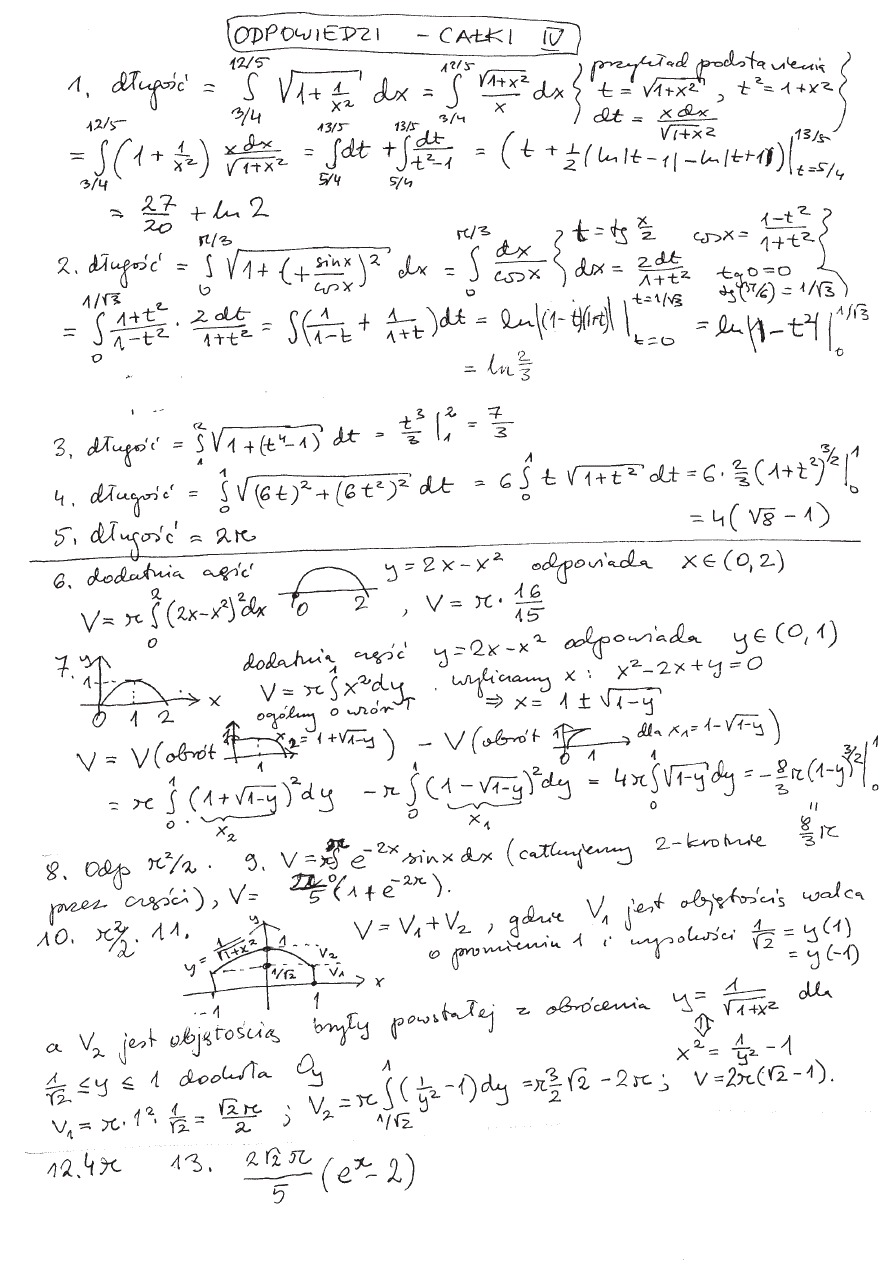 ODPOWIEDZI - CAŁKI IV
1. długość = ∫_{3/4}^{12/5} √(1+1/x²) dx = ∫_{3/4}^{12/5} √(1+x²)/x dx } przykład podstawienia t = √(1+x²), t² = 1+x² dt = x dx/√(1+x²) }
= ∫_{3/4}^{12/5} (1 + 1/x²) x dx/√(1+x²) = ∫_{5/4}^{13/5} dt + ∫_{5/4}^{13/5} dt/(t²-1) = (t + 1/2 (ln|t-1| - ln|t+1|)|_{t=5/4}^{13/5}
= 27/20 + ln 2
2. długość = ∫_0^{π/3} √(1+(+ sinx/cosx)²) dx = ∫_0^{π/3} dx/cosx } t = tg x/2 cosx = (1-t²)/(1+t²) dx = 2dt/(1+t²) tg 0 = 0 tg(π/6) = 1/√3 }
= ∫_0^{1/√3} (1+t²)/(1-t²) · 2dt/(1+t²) = ∫(1/(1-t) + 1/(1+t))dt = ln|(1-t)(1+t)| |_{t=0}^{t=1/√3} = ln|1-t²| |_0^{1/√3}
= ln 2/3
3. długość = ∫_1^2 √(1+(t⁴-1)) dt = t³/3 |_1^2 = 7/3
4. długość = ∫_0^1 √((6t)²+(6t²)²) dt = 6∫_0^1 t √(1+t²) dt = 6·2/3 (1+t²)^{3/2} |_0^1
= 4(√8 - 1)
5. długość = 2π
6. dodatnia część y = 2x-x² odpowiada x∈(0,2)
V = π∫_0^2 (2x-x²)² dx 0 2 , V = π · 16/15
7. y 1 0 1 2 x dodatnia część y = 2x-x² odpowiada y∈(0,1)
V = π∫x²dy. wyliczamy x: x²-2x+y=0
ogólny wzór ↑ ⇒ x = 1 ± √(1-y)
V = V(obrót 1 x₂=1+√(1-y)) - V(obrót 1 0 1 dla x₁=1-√(1-y))
= π∫_0^1 (1+√(1-y))² dy - π∫_0^1 (1-√(1-y))² dy = 4π∫_0^1 √(1-y) dy = -8/3 π(1-y)^{3/2} |_0^1
x₂ x₁ = 8/3 π
8. Odp π²/2. 9. V = π∫_0^π e^{-2x} sinx dx (całkujemy 2-krotnie
przez części), V = 2π/5 (1+e^{-2π}).
10. π²/2. 11. V = V₁+V₂, gdzie V₁ jest objętością walca
o promieniu 1 i wysokości 1/√2 = y(1)
= y(-1)
y y = 1/√(1+x²) 1 V₂ 1/√2 V₁ x -1 1
a V₂ jest objętością bryły powstałej z obrócenia y = 1/√(1+x²) dla
⇕ x² = 1/y² - 1
1/√2 ≤ y ≤ 1 dookoła Oy
V₁ = π·1²·1/√2 = √2π/2 ; V₂ = π∫_{1/√2}^1 (1/y² - 1)dy = π 3/2 √2 - 2π ; V = 2π(√2-1).
12. 4π 13. 2√2 π/5 (e^π - 2)